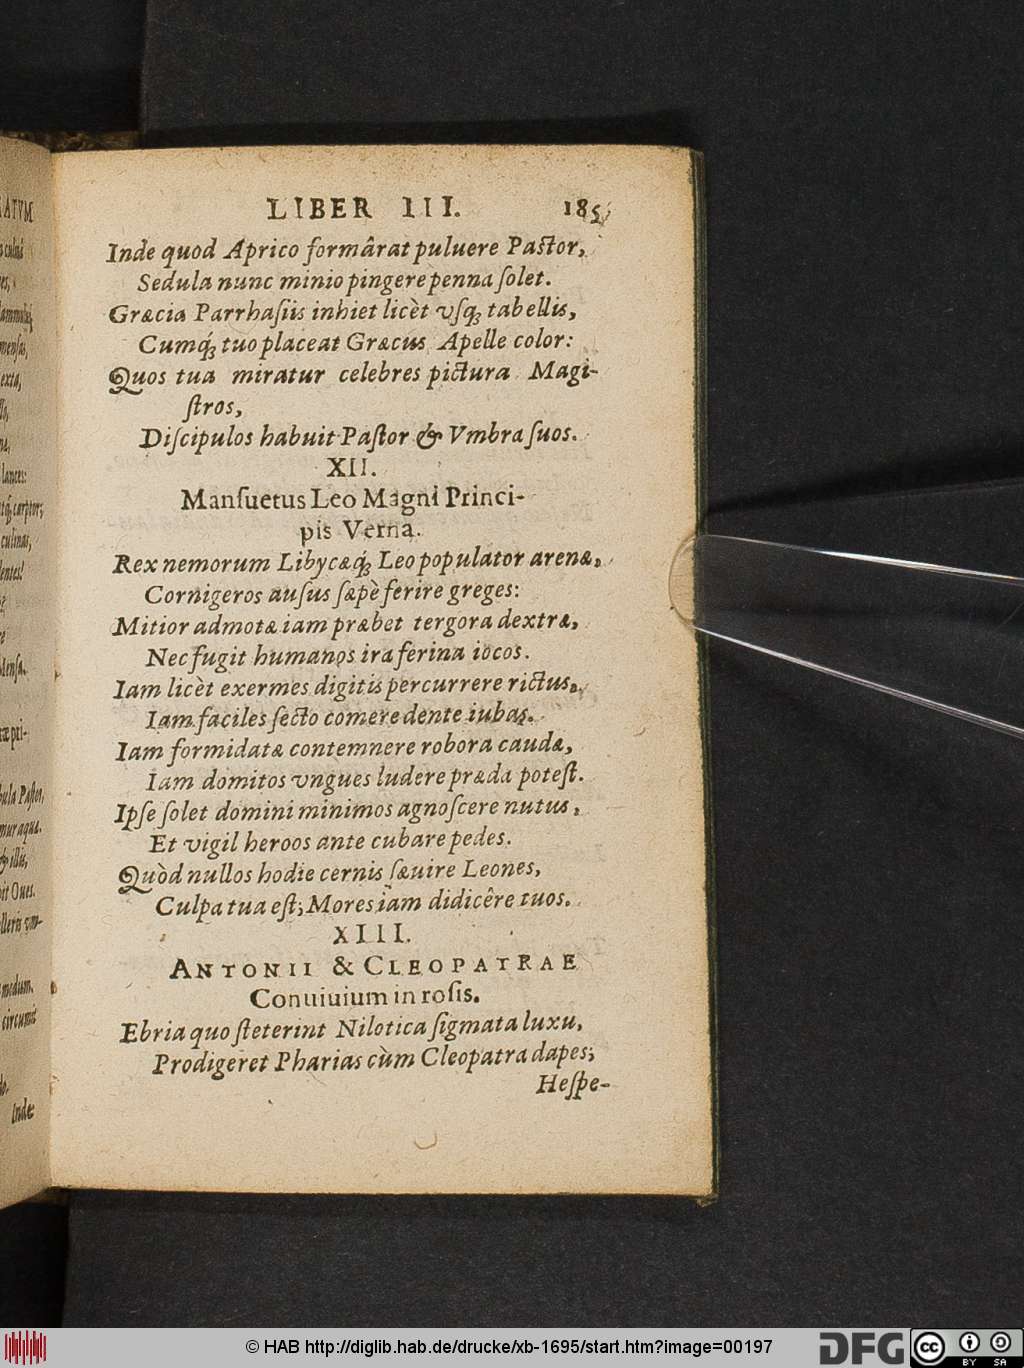 LIBER III. 185
Inde quod Aprico formârat puluere Pastor,
Sedula nunc minio pingere penna solet.
Græcia Parrhasiis inhiet licèt vsq; tabellis,
Cumq́; tuo placeat Græcus Apelle color:
Quos tua miratur celebres pictura Magi-
stros,
Discipulos habuit Pastor & Vmbra suos.
XII.
Mansuetus Leo Magni Princi-
pis Verna.
Rex nemorum Libycæq́; Leo populator arenæ,
Cornigeros ausus sæpè ferire greges:
Mitior admotæ iam præbet tergora dextræ,
Nec fugit humanos ira ferina iocos.
Iam licèt exermes digitis percurrere rictus,
Iam faciles secto comere dente iubas.
Iam formidatæ contemnere robora caudæ,
Iam domitos vngues ludere præda potest.
Ipse solet domini minimos agnoscere nutus,
Et vigil heroos ante cubare pedes.
Quòd nullos hodie cernis sæuire Leones,
Culpa tua est; Mores iam didicêre tuos.
XIII.
ANTONII & CLEOPATRAE
Conuiuium in rosis.
Ebria quo steterint Nilotica sigmata luxu,
Prodigeret Pharias cùm Cleopatra dapes;
Hespe-
© HAB http://diglib.hab.de/drucke/xb-1695/start.htm?image=00197
DFG
cc
BY SA